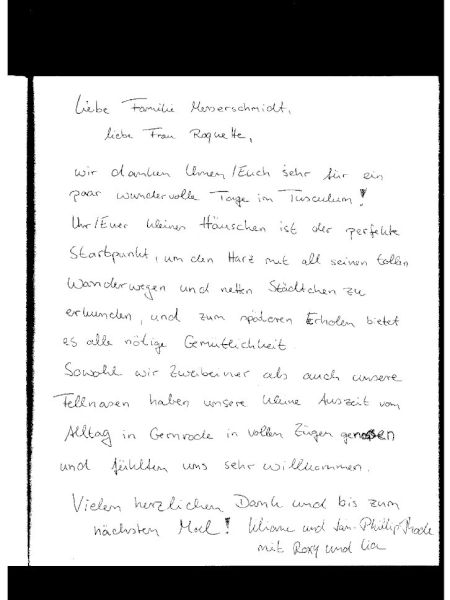 Liebe Familie Messerschmidt,
liebe Frau Roquette,
wir danken Ihnen/Euch sehr für ein
paar wundervolle Tage im Tusculum!
Ihr/Euer kleines Häuschen ist der perfekte
Startpunkt, um den Harz mit all seinen tollen
Wanderwegen und netten Städtchen zu
erkunden, und zum späteren Erholen bietet
es alle nötige Gemütlichkeit.
Sowohl wir Zweibeiner als auch unsere
Fellnasen haben unsere kleine Auszeit vom
Alltag in Gernrode in vollen Zügen genossen
und fühlten uns sehr willkommen.
Vielen herzlichen Dank und bis zum
nächsten Mal! und Jan-Phillip
mit Roxy und